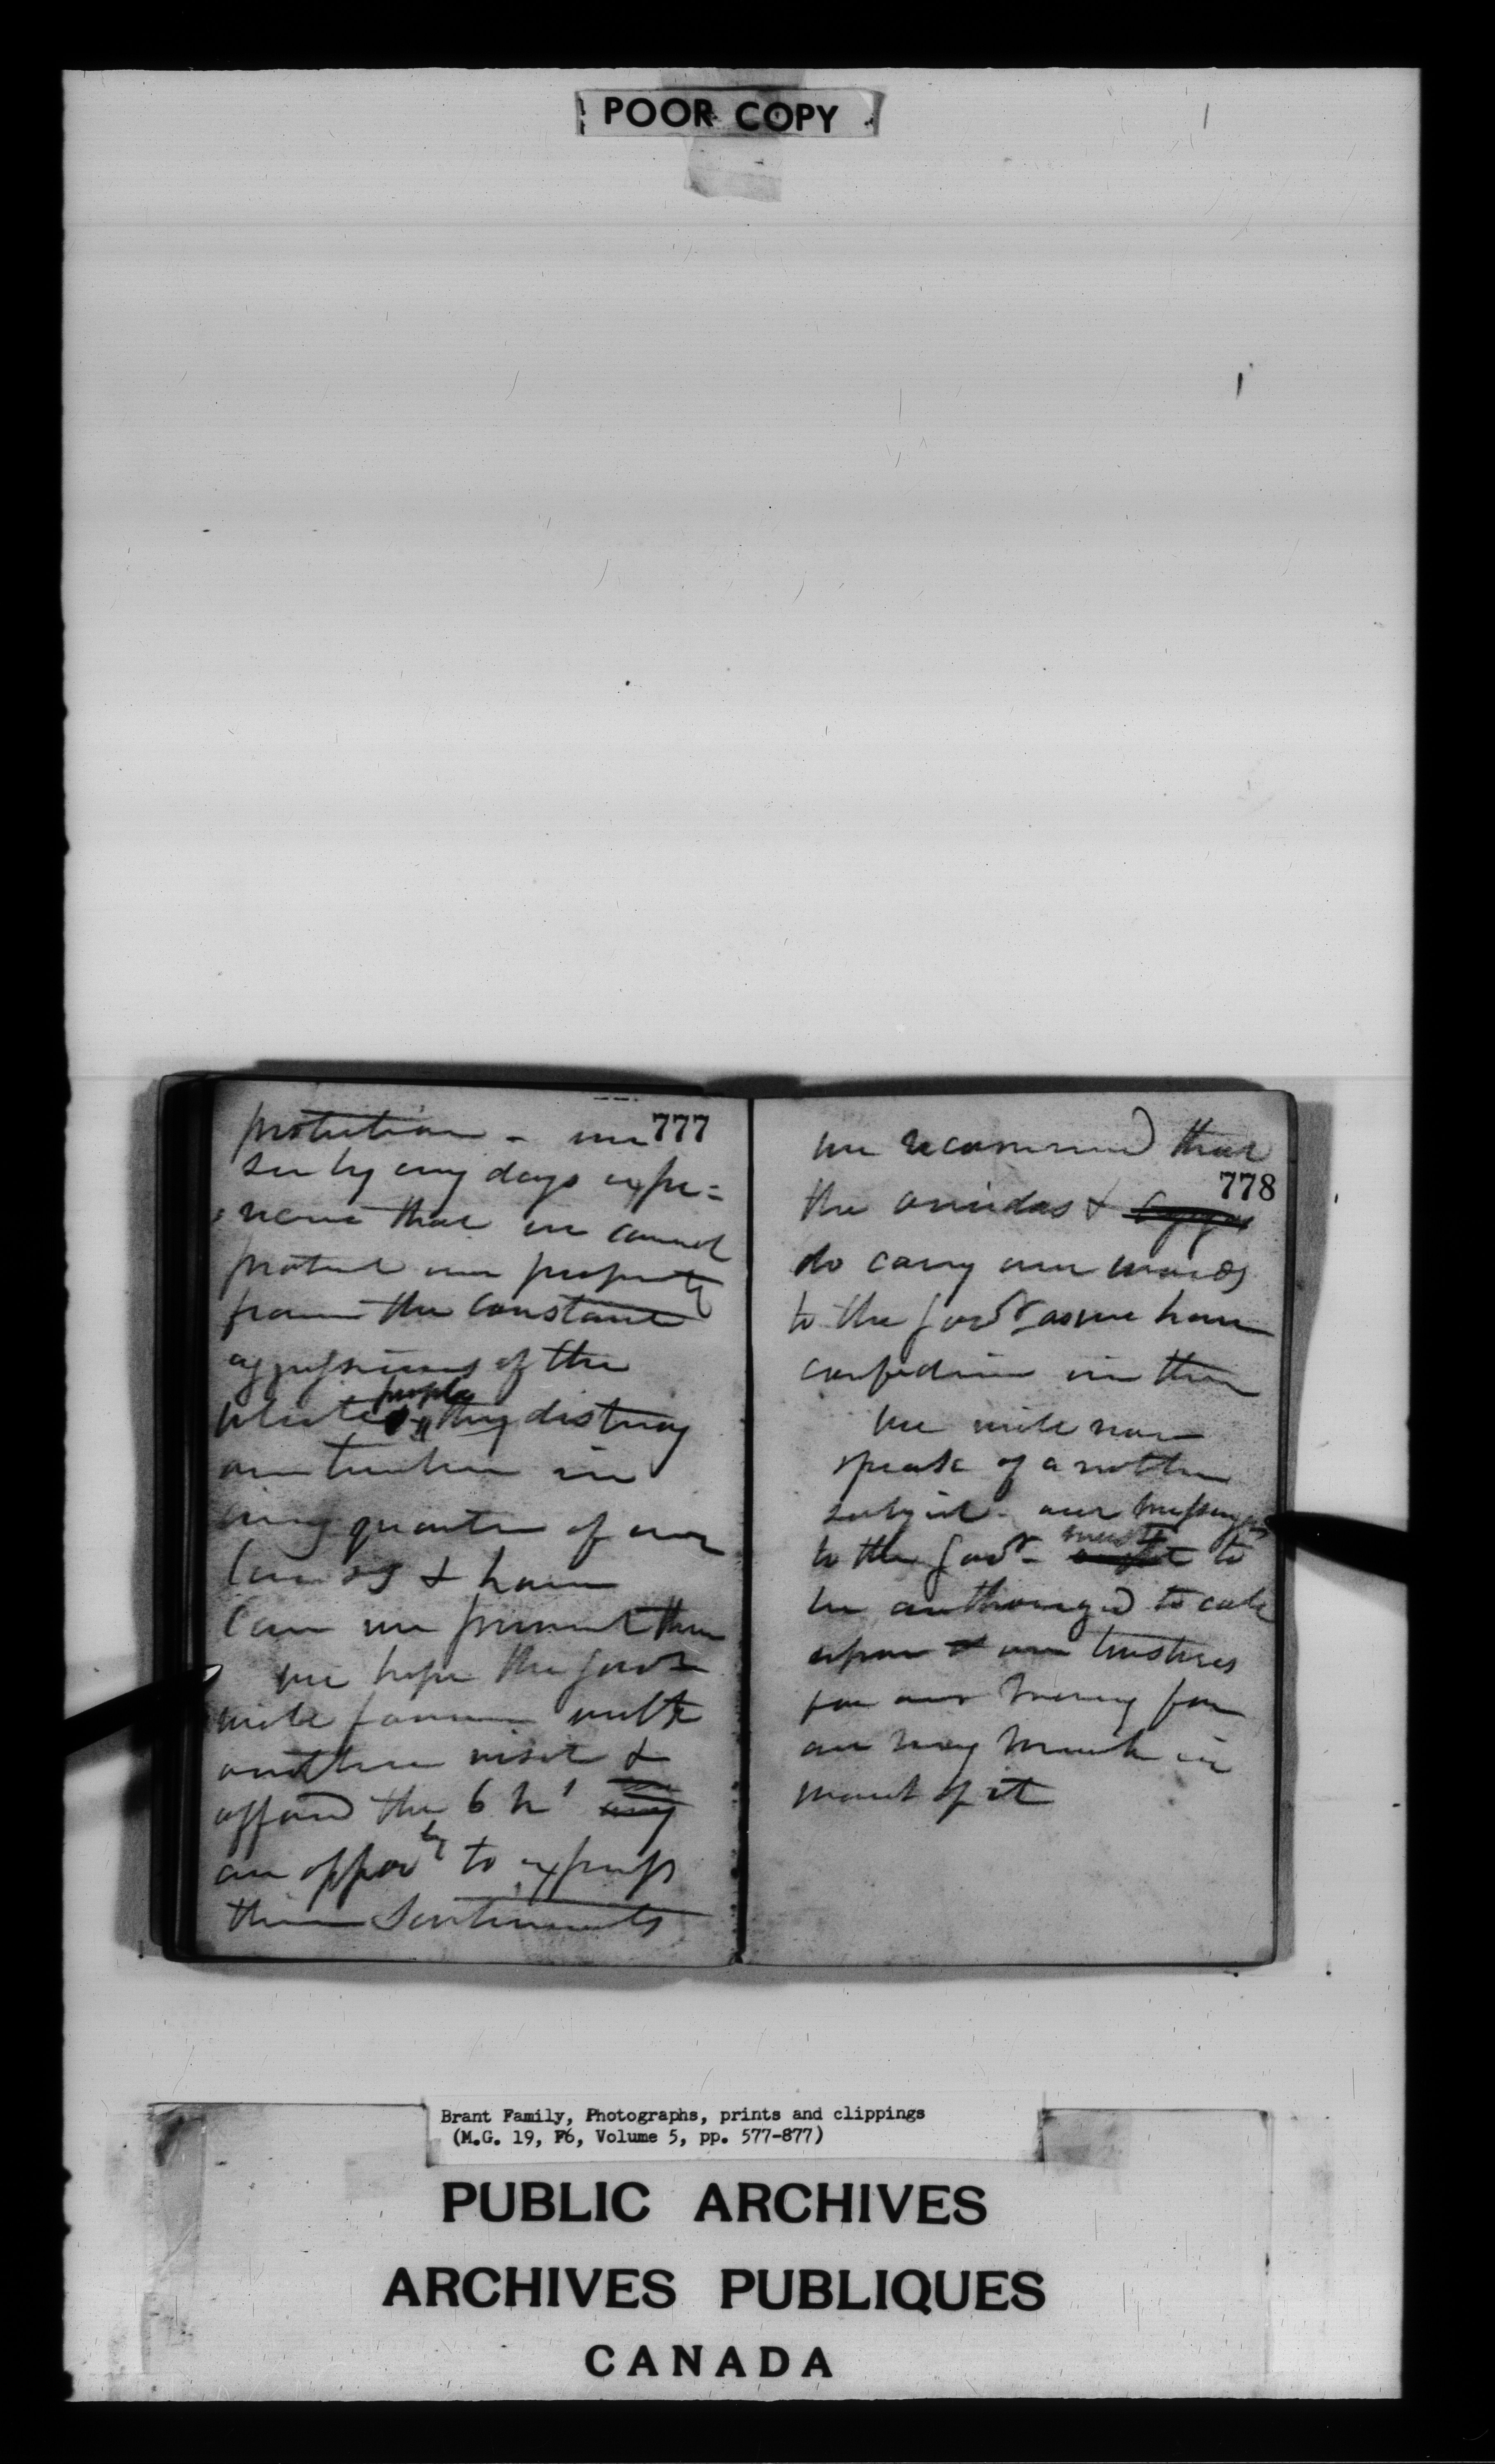 POOR COPY
777
protection - we
see by evy days expe=
rience that we cannot
protect our property
from the constant
aggressions of the
white people they distroy
our timber in
evry quarter of our
lands & how
can we prevent them
we hope the Govr
will favour with
another visit &
afford the 6 Ns any
an opporty to express
their Sentiments
we recommend that
778
the oneidas &
do carry our words
to the Govr as we have
confidence in them
we will now
speak of another
subject - our messengers
to the Govr - must to
be authorized to call
upon our trustees
for our money for
are very much in
want of it
Brant Family, Photographs, prints and clippings
(M.G. 19, F6, Volume 5, pp. 577-877)
PUBLIC ARCHIVES
ARCHIVES PUBLIQUES
CANADA